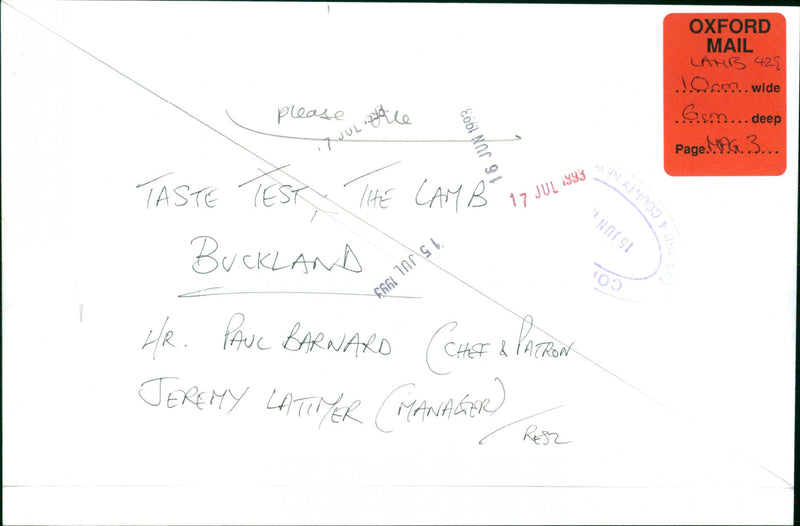 OXFORD
MAIL
LAMB 428
10cm wide
6cm deep
Page MAG 3
please file
17 JUL 1993
16 JUN 1993
17 JUL 1993
15 JUN
& COUNTY NEW
TASTE TEST, THE LAMB
BUCKLAND
15 JUL 1993
MR. PAUL BARNARD (CHEF & PATRON
JEREMY LATIMER (MANAGER)